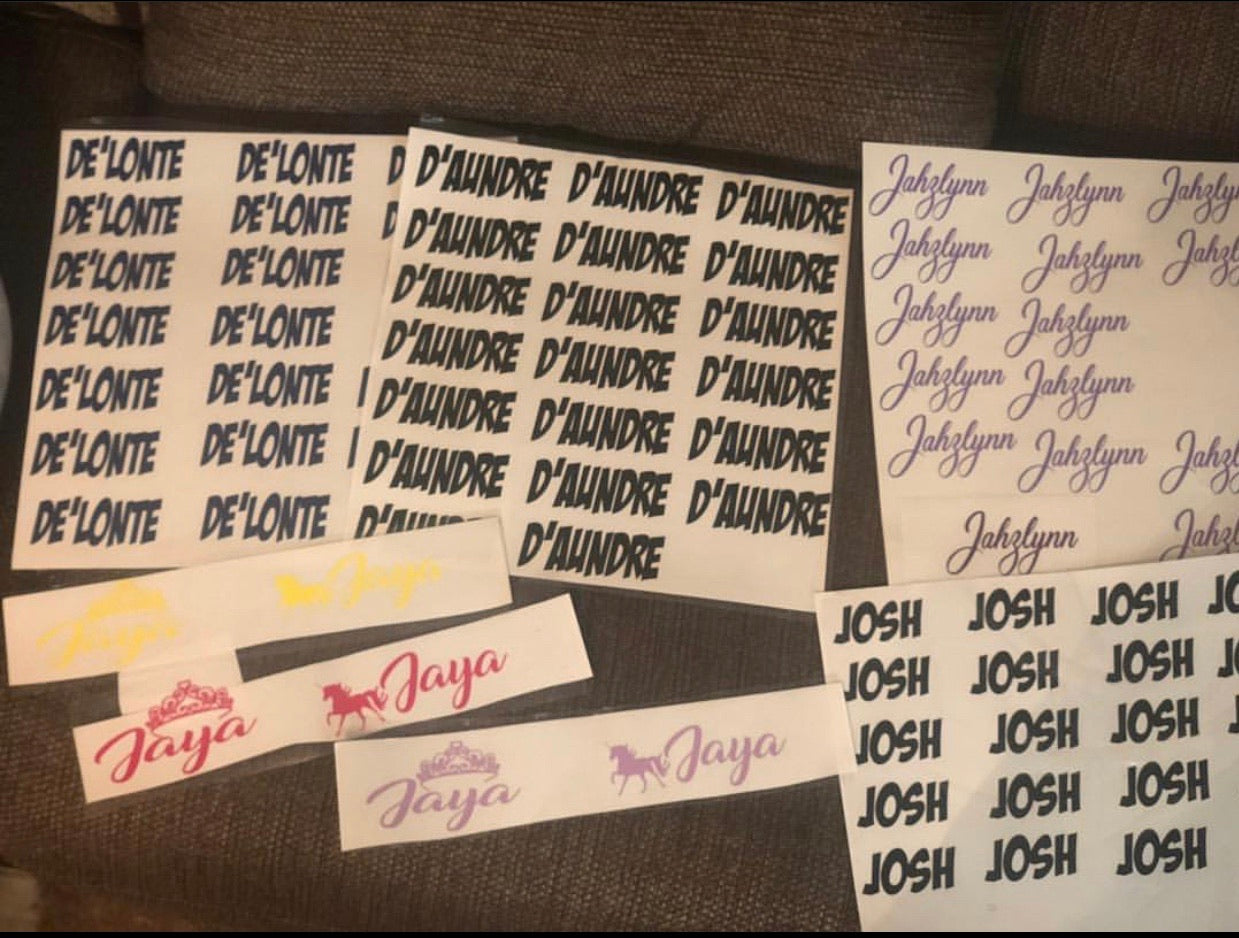 DE'LONTE DE'LONTE
DE'LONTE DE'LONTE
DE'LONTE DE'LONTE
DE'LONTE DE'LONTE
DE'LONTE DE'LONTE
DE'LONTE DE'LONTE
DE'LONTE DE'LONTE
D'AUNDRE D'AUNDRE D'AUNDRE
D'AUNDRE D'AUNDRE D'AUNDRE
D'AUNDRE D'AUNDRE D'AUNDRE
D'AUNDRE D'AUNDRE D'AUNDRE
D'AUNDRE D'AUNDRE D'AUNDRE
D'AUNDRE D'AUNDRE D'AUNDRE
D'AUNDRE
Jahzlynn Jahzlynn
Jahzlynn Jahzlynn
Jahzlynn Jahzlynn
Jahzlynn Jahzlynn
Jahzlynn Jahzlynn
Jahzlynn
Jaya Jaya
Jaya Jaya
Jaya Jaya
JOSH JOSH JOSH
JOSH JOSH JOSH
JOSH JOSH JOSH
JOSH JOSH JOSH
JOSH JOSH JOSH